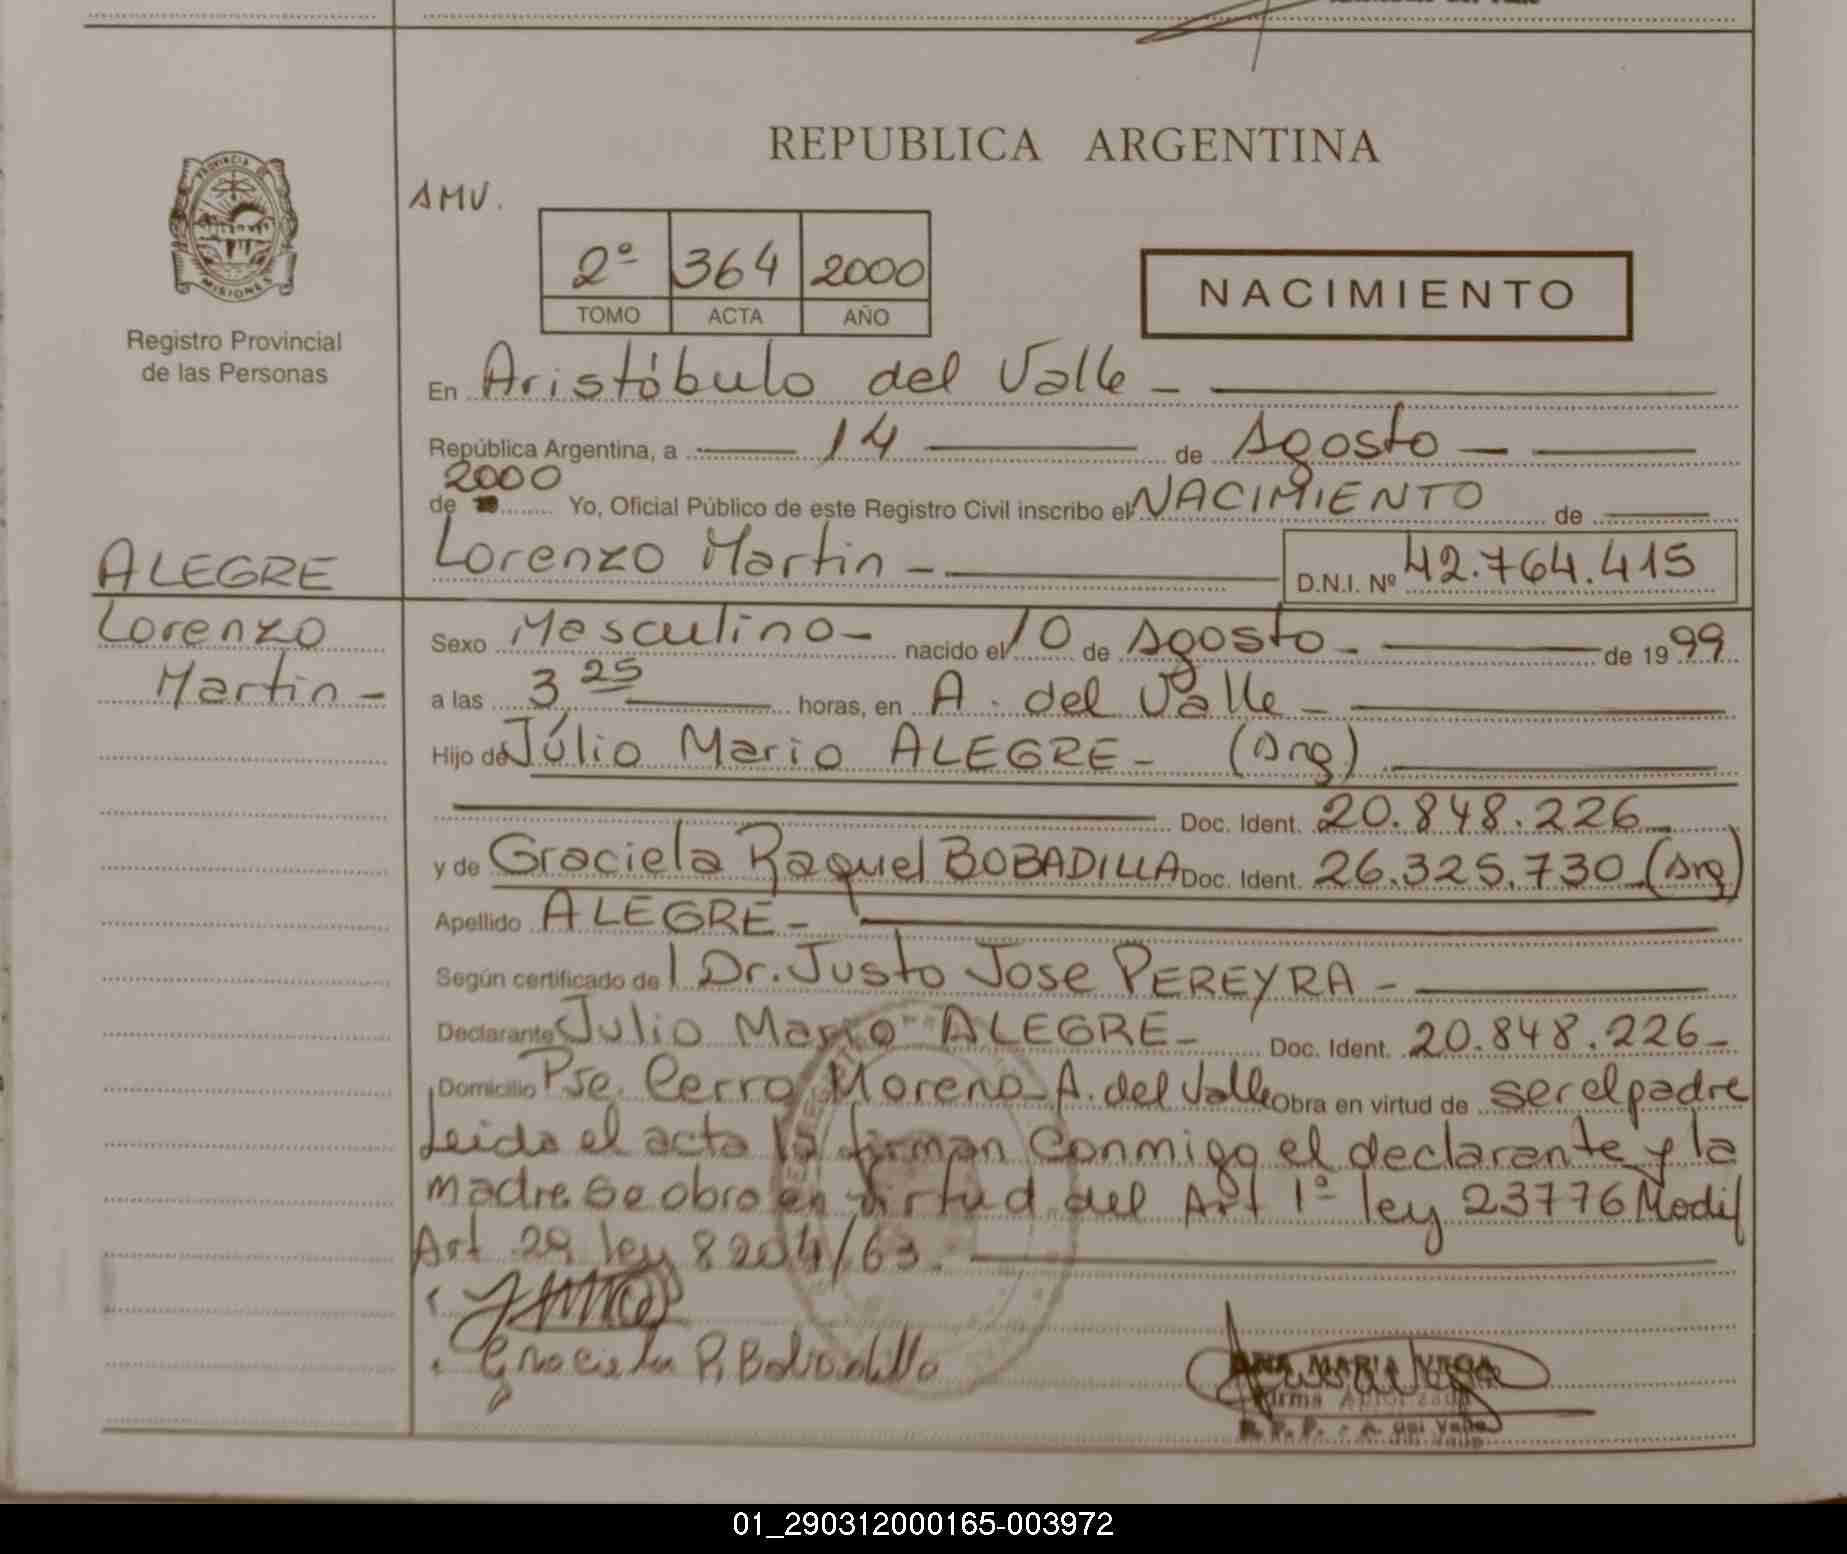 REPUBLICA ARGENTINA
PROVINCIA DE
MISIONES
Registro Provincial
de las Personas
AMV.
2º 364 2000
TOMO ACTA AÑO
NACIMIENTO
En Aristóbulo del Valle -
República Argentina, a 14 de Agosto
2000
de Yo, Oficial Público de este Registro Civil inscribo el NACIMIENTO de
Lorenzo Martin - D.N.I. Nº 42.764.415
ALEGRE
Lorenzo
Martin -
Sexo Masculino - nacido el 10 de Agosto - de 1999
a las 3 25 horas, en A. del Valle -
Hijo de Júlio Mario ALEGRE - (Arg)
Doc. Ident. 20.848.226
y de Graciela Raquel BOBADILLA Doc. Ident. 26.325.730 (Arg)
Apellido ALEGRE -
Según certificado de l Dr. Justo Jose PEREYRA -
Declarante Julio Mario ALEGRE - Doc. Ident. 20.848.226 -
Domicilio Pje. Cerro Moreno - A. del Valle Obra en virtud de ser el padre
Leida el acta la firman Conmigo el declarante y la
madre. Se obro en virtud del Art 1º ley 23776 Modif
Art 29 ley 8204/63.
Graciela R. Bobadilla
ANA MARIA VEGA
Firma Autorizada
R. P. P. - A. del Valle
01_290312000165-003972